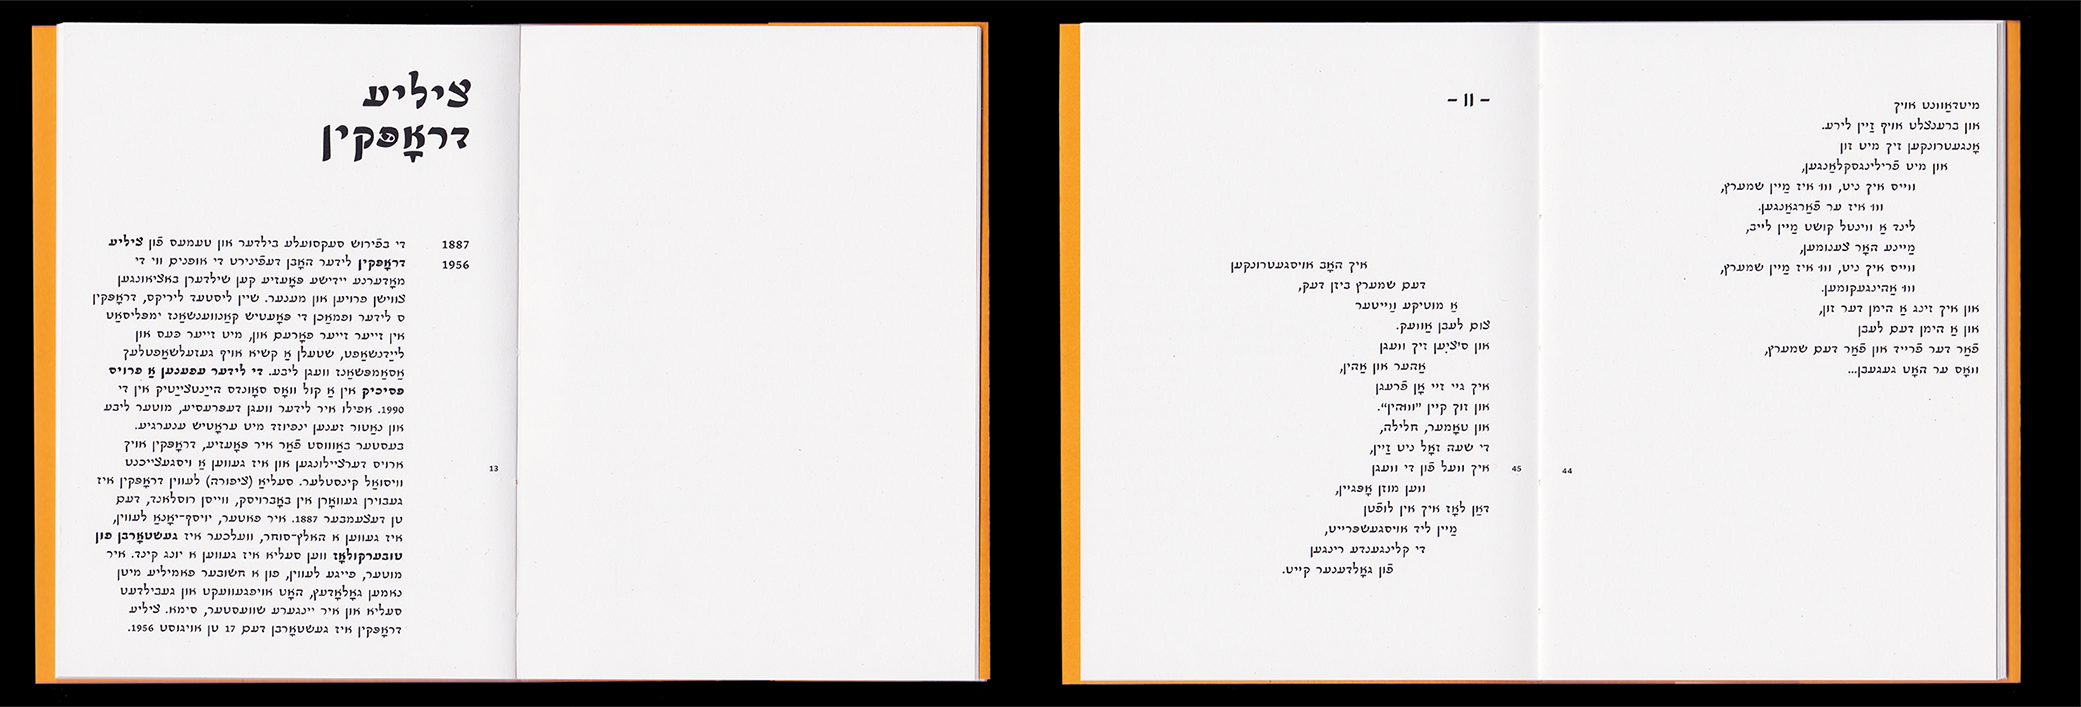 ציליע
דראָפּקין
1887
1956
די בפֿירוש סעקסועלע בילדער און טעמעס פֿון ציליע
דראָפּקין לידער האָבן דעפֿינירט די אופנים ווי די
מאָדערנע יידישע פּאָעזיע קען שילדערן באַציאונגען
צווישן פרויען און מענער. שיין ליסטעד ליריקס, דראָפּקין
ס לידער ופמאַכן די פּאָעטיש קאַנווענשאַנז ימפּליסאַט
אין זייער זייער פאָרעם און, מיט זייער כּעס און
ליידנשאַפט, שטעלן אַ קשיא אויף געזעלשאַפטלעך
אַסאַמפּשאַנז וועגן ליבע. די לידער עפענען אַ פרויס
פּסיכיק אין אַ קול וואָס סאָונדס הײַנטצײַטיק אין די
1990. אפילו איר לידער וועגן דעפּרעסיע, מוטער ליבע
און נאַטור זענען ינפיוזד מיט עראָטיש ענערגיע.
בעסטער באַוווסט פֿאַר איר פּאָעזיע, דראָפּקין אויך
ארויס דערציילונגען און איז געווען אַ ויסגעצייכנט
וויסואַל קינסטלער. סעליאַ (ציפורה) לעווין דראָפּקין איז
געבוירן געוואָרן אין באָברויסק, ווייסן רוסלאנד, דעם
טן דעצעמבער 1887. איר פאטער, יויסף-יאָנאַ לעווין,
איז געווען א האלץ-סוחר, וועלכער איז געשטאָרבן פון
טובערקולאָז ווען סעליא איז געווען א יונג קינד. איר
מוטער, פייגע לעווין, פון א חשובער פאמיליע מיטן
נאמען גאָלאָדעץ, האָט אויפגעוועקט און געבילדעט
סעליא און איר יינגערע שוועסטער, סימא. ציליע
דראָפּקין איז געשטאָרבן דעם 17 טן אויגוסט 1956.
13
מיטדאַוונט אויך
און ברענצלט אויף זַיין לירע.
אָנגעטרונקען זיך מיט זון
און מיט פֿרילינגסקלאַנגען,
ווייס איך ניט, וווּ איז מַיין שמערץ,
וווּ איז ער פֿאַרגאַנגען.
לינד אַ ווינטל קושט מַיין לייב,
מַיינע האָר צענומען,
ווייס איך ניט, וווּ איז מַיין שמערץ,
וווּ אַהינגעקומען.
און איך זינג אַ הימן דער זון,
און אַ הימן דעם לעבן
פֿאַר דער פֿרייד און פֿאַר דעם שמערץ,
וואָס ער האָט געגעבן...
44
– II –
איך האָב אויסגעטרונקען
דעם שמערץ ביזן דעק,
אַ מוטיקע ווַייטער
צום לעבן אַוועק.
און ס'ציִען זיך וועגן
אַהער און אַהין,
איך גיי זיי אָן פֿרעגן
און זוך קיין "וווּהין".
און טאָמער, חלילה,
די שעה זאָל ניט זַיין,
איך וועל פֿון די וועגן
ווען מוזן אָפּגיין,
דאַן לאָז איך אין לופֿטן
מַיין ליד אויסגעשפּרייט,
די קלינגענדע רינגען
פֿון גאָלדענער קייט.
45